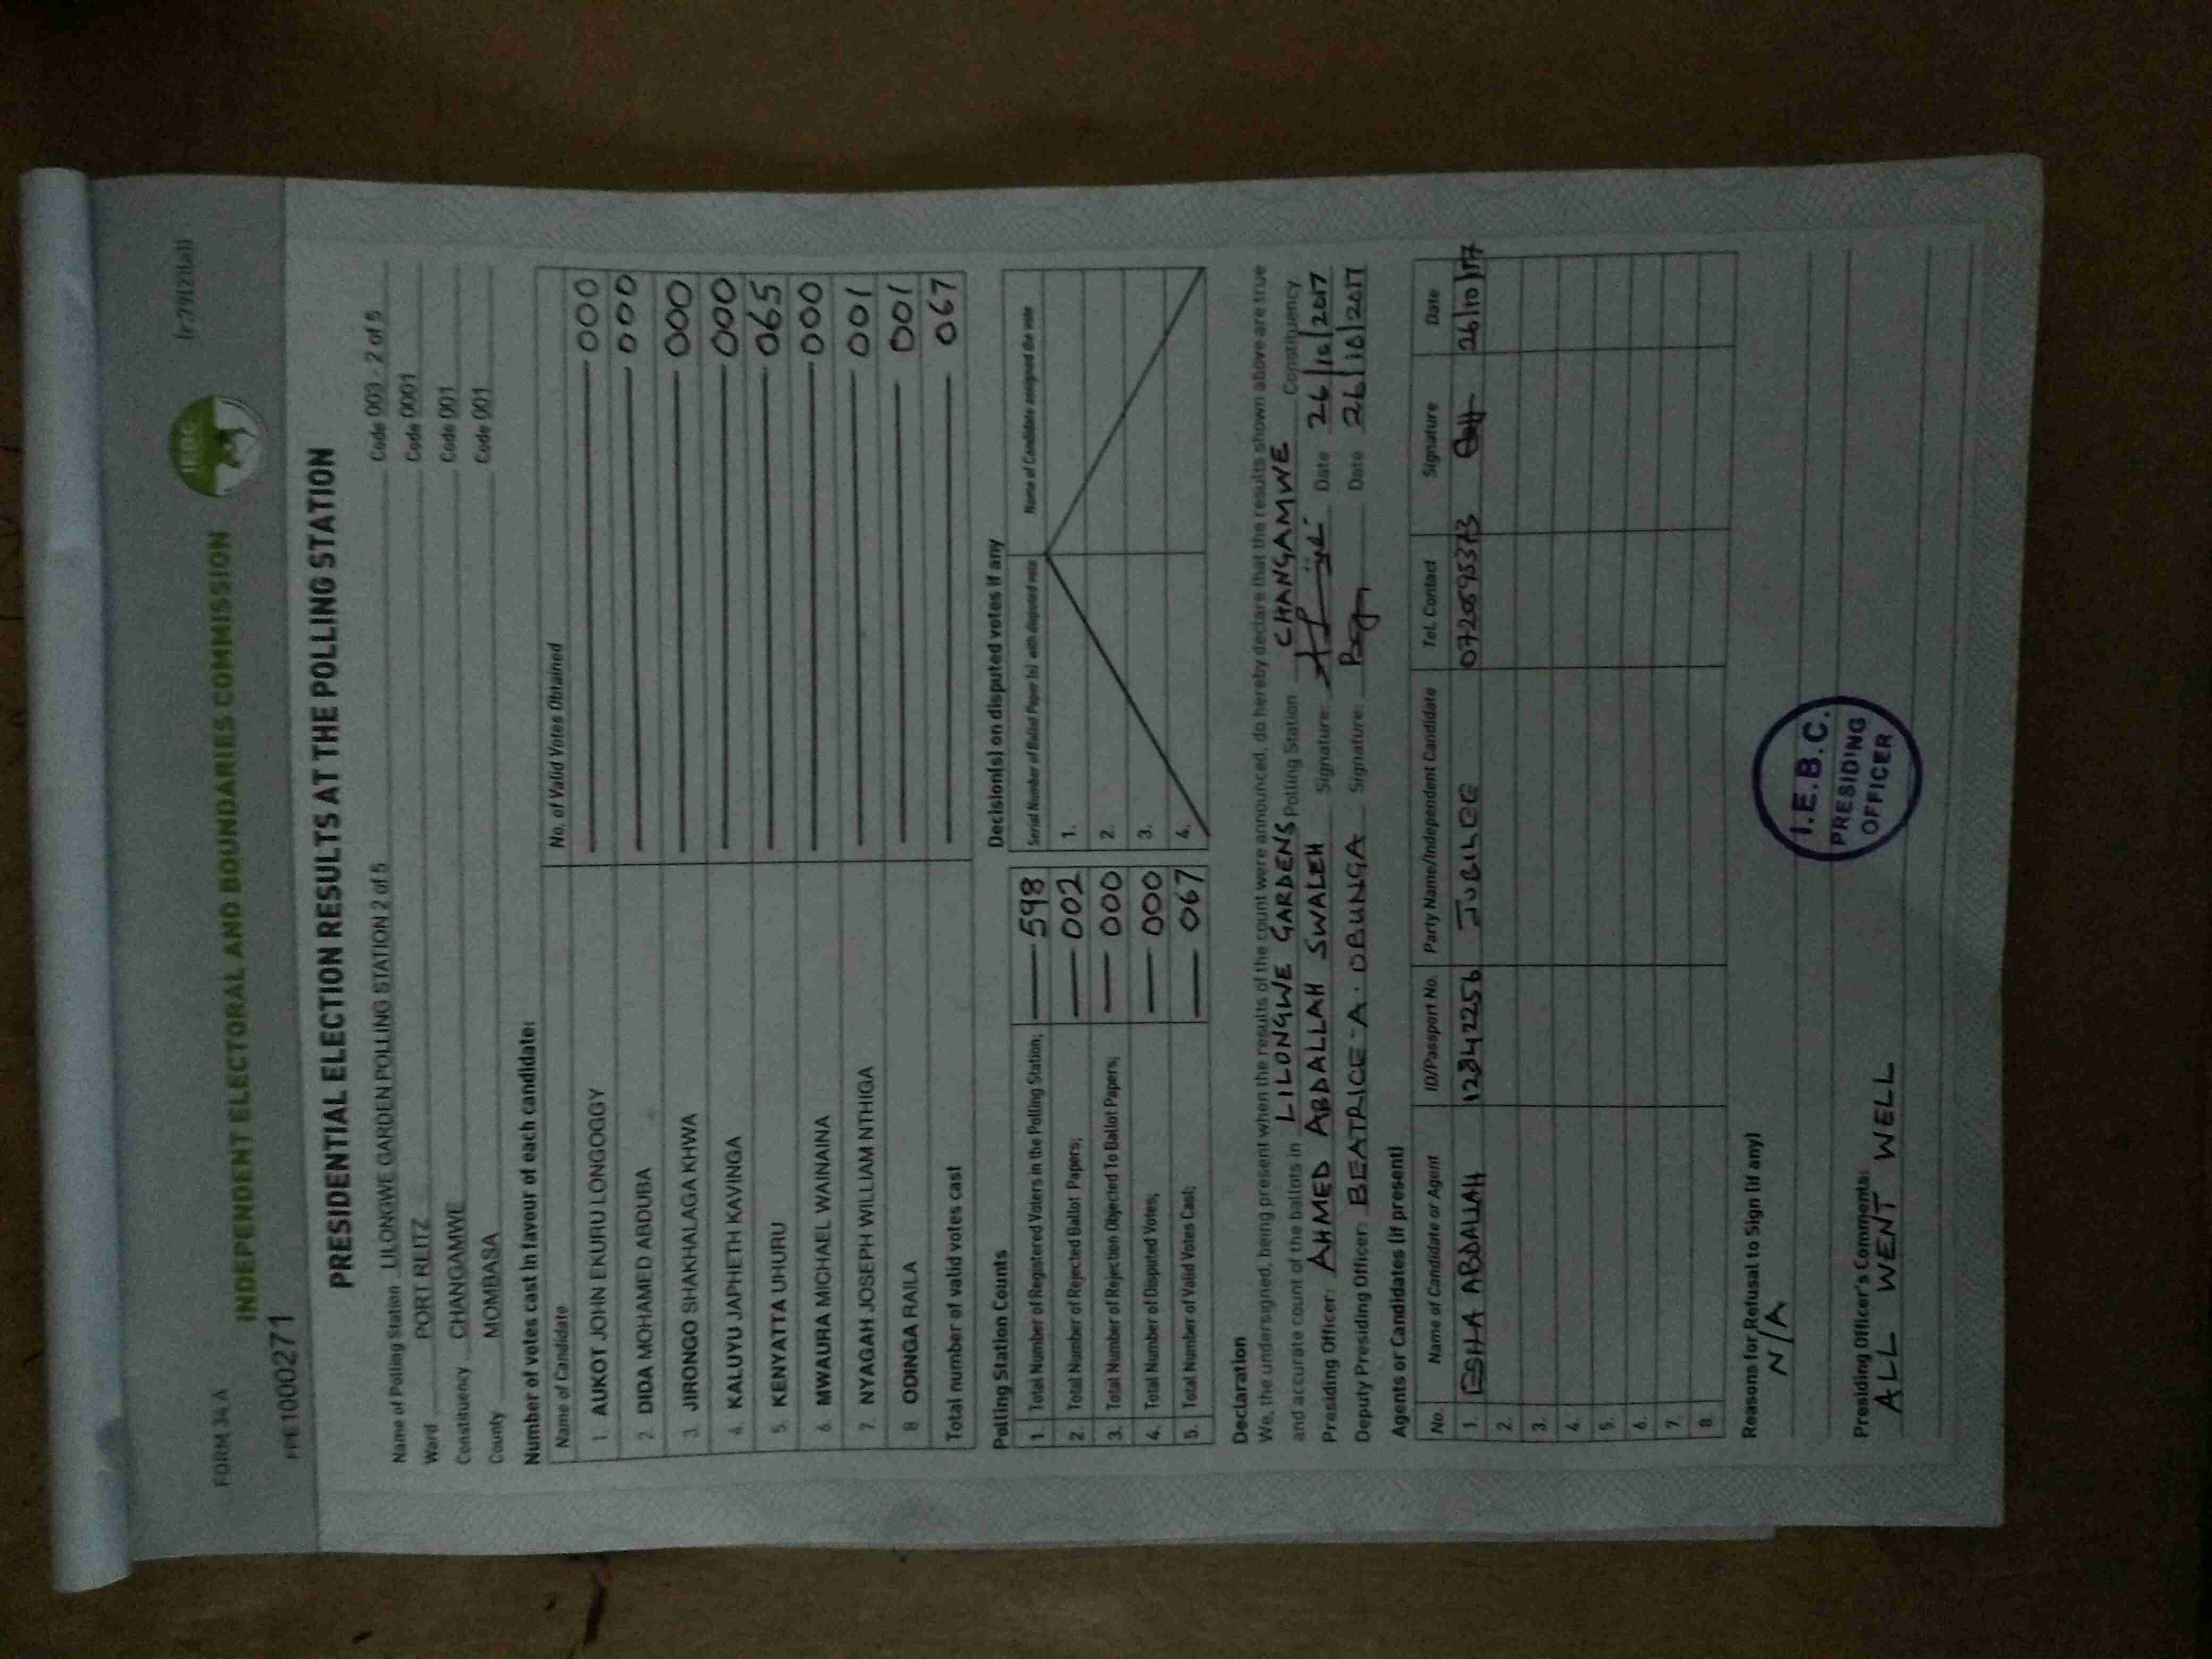 FORM 34 A
(r.79(2)(a))
INDEPENDENT ELECTORAL AND BOUNDARIES COMMISSION
IEBC
FPE1000271
PRESIDENTIAL ELECTION RESULTS AT THE POLLING STATION
Name of Polling Station LILONGWE GARDEN POLLING STATION 2 of 5 Code 003 - 2 of 5
Ward PORT REITZ Code 0001
Constituency CHANGAMWE Code 001
County MOMBASA Code 001
Number of votes cast in favour of each candidate:
Name of Candidate No. of Valid Votes Obtained
1. AUKOT JOHN EKURU LONGOGGY 000
2. DIDA MOHAMED ABDUBA 000
3. JIRONGO SHAKHALAGA KHWA 000
4. KALUYU JAPHETH KAVINGA 000
5. KENYATTA UHURU 065
6. MWAURA MICHAEL WAINAINA 000
7. NYAGAH JOSEPH WILLIAM NTHIGA 001
8 ODINGA RAILA 001
Total number of valid votes cast 067
Polling Station Counts
1. Total Number of Registered Voters in the Polling Station; 598
2. Total Number of Rejected Ballot Papers; 002
3. Total Number of Rejection Objected To Ballot Papers; 000
4. Total Number of Disputed Votes; 000
5. Total Number of Valid Votes Cast; 067
Decision(s) on disputed votes if any
Serial Number of Ballot Paper (s) with disputed vote Name of Candidate assigned the vote
1.
2.
3.
4.
Declaration
We, the undersigned, being present when the results of the count were announced, do hereby declare that the results shown above are true
and accurate count of the ballots in LILONGWE GARDENS Polling Station CHANGAMWE Constituency
Presiding Officer: AHMED ABDALLAH SWALEH Signature: Date 26/10/2017
Deputy Presiding Officer: BEATRICE A. OBUNGA Signature: Date 26/10/2017
Agents or Candidates (if present)
No. Name of Candidate or Agent ID/Passport No. Party Name/Independent Candidate Tel. Contact Signature Date
1. ESHA ABDALLAH 12842256 JUBILEE 0720595373 26/10/17
2.
3.
4.
5.
6.
7.
8.
Reasons for Refusal to Sign (if any)
N/A
Presiding Officer's Comments:
ALL WENT WELL
I.E.B.C.
PRESIDING
OFFICER